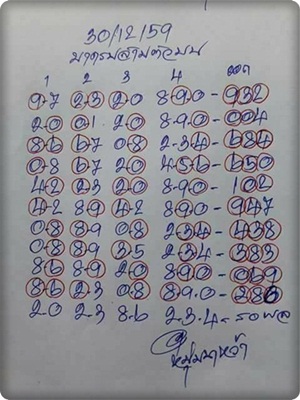 30/12/59
มาตรฐานสามตัวบน
1 2 3 4 ออก
9-7 2-3 2-0 8-9-0 - 932
2-0 0-1 2-0 8-9-0 - 004
8-6 6-7 0-8 2-3-4 - 684
0-8 6-7 2-0 4-5-6 - 650
4-2 2-3 2-0 8-9-0 - 102
4-2 8-9 4-2 8-9-0 - 947
0-8 8-9 0-8 2-3-4 - 438
0-8 8-9 3-5 2-3-4 - 383
8-6 8-9 2-0 8-9-0 - 069
8-6 2-3 0-8 8-9-0 - 286
2-0 2-3 8-6 2-3-4 - รอผล